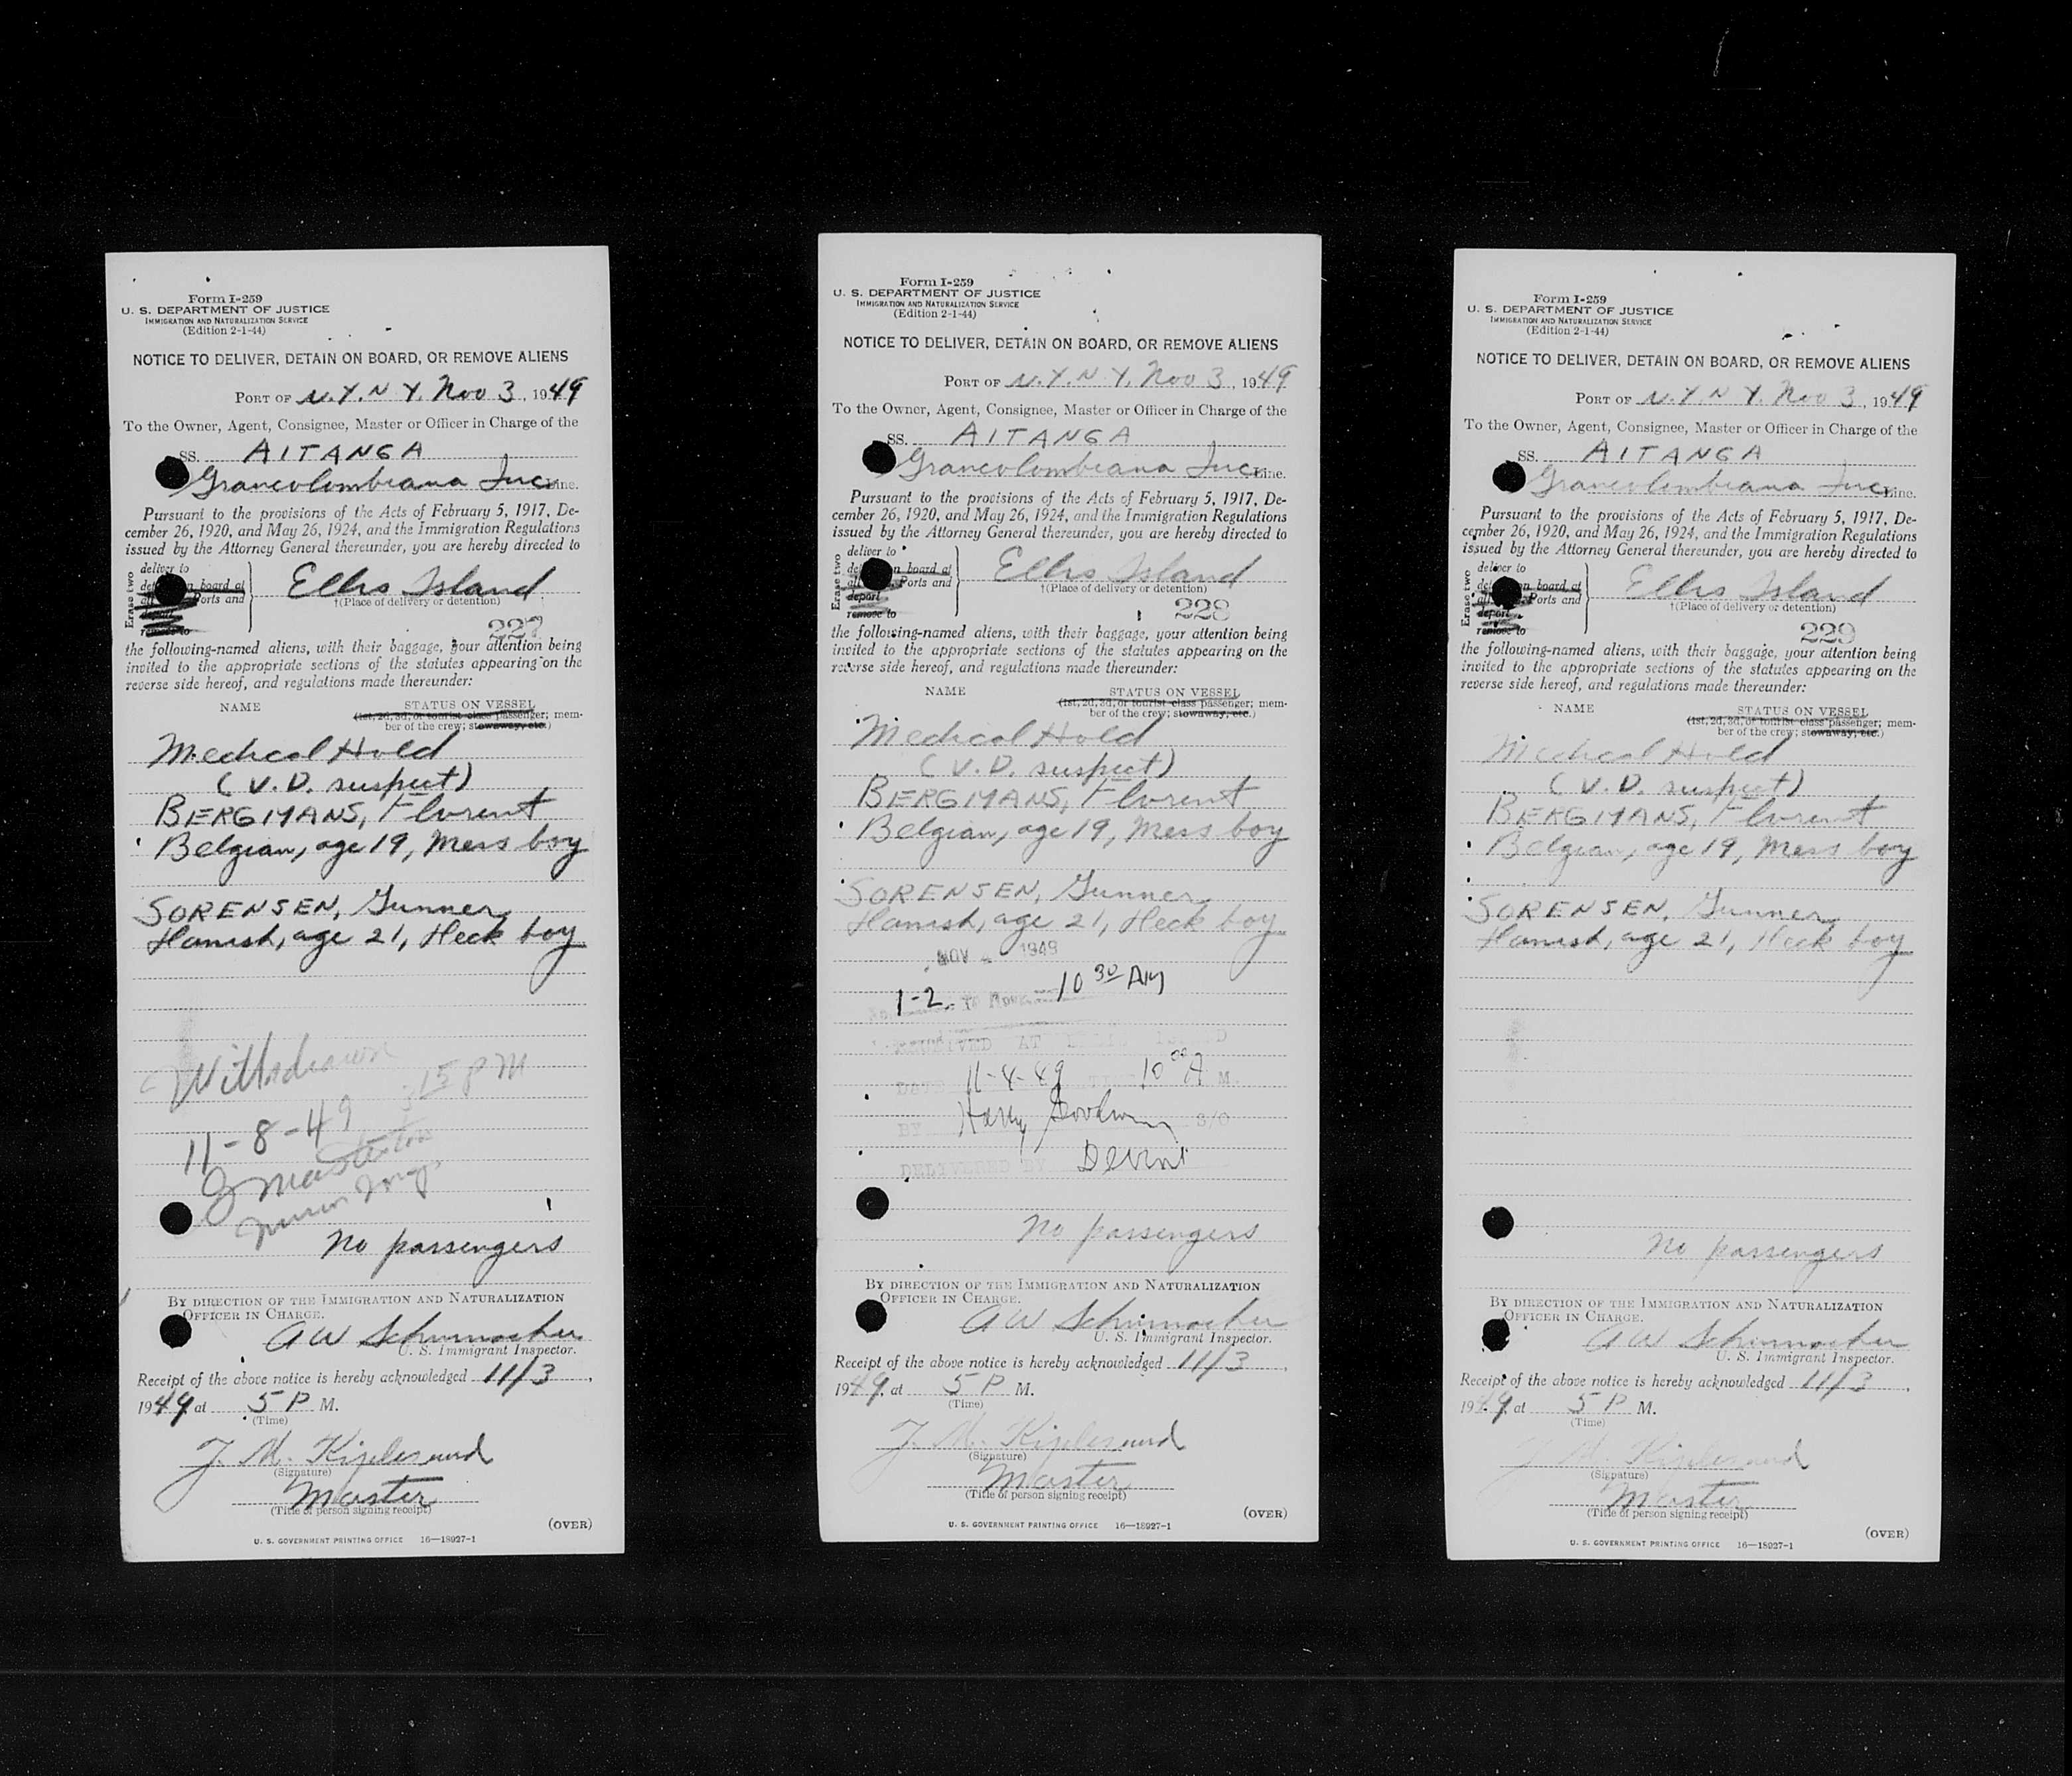 Form I-259
U. S. DEPARTMENT OF JUSTICE
IMMIGRATION AND NATURALIZATION SERVICE
(Edition 2-1-44)
NOTICE TO DELIVER, DETAIN ON BOARD, OR REMOVE ALIENS
PORT OF N.Y. N Y. Nov 3, 1949
To the Owner, Agent, Consignee, Master or Officer in Charge of the
SS. AITANGA
Grancolombiana Inc. Line.
Pursuant to the provisions of the Acts of February 5, 1917, De-
cember 26, 1920, and May 26, 1924, and the Immigration Regulations
issued by the Attorney General thereunder, you are hereby directed to
Erase two
deliver to
n board at
Ports and
remove to
Ellis Island
†(Place of delivery or detention)
227
the following-named aliens, with their baggage, your attention being
invited to the appropriate sections of the statutes appearing on the
reverse side hereof, and regulations made thereunder:
NAME STATUS ON VESSEL
(1st, 2d, 3d, or tourist class passenger; mem-
ber of the crew; stowaway, etc.)
Medical Hold
(V.D. suspect)
BERGMANS, Florent
Belgian, age 19, Mess boy
SORENSEN, Gunner
Danish, age 21, Deck boy
Withdrawn
315 PM
11-8-49
No passengers
BY DIRECTION OF THE IMMIGRATION AND NATURALIZATION
OFFICER IN CHARGE.
A W Schumacher
U. S. Immigrant Inspector.
Receipt of the above notice is hereby acknowledged 11/3,
1949, at 5 P M.
(Time)
J. M.
(Signature)
Master
(Title of person signing receipt)
(OVER)
U. S. GOVERNMENT PRINTING OFFICE 16—18927-1
Form I-259
U. S. DEPARTMENT OF JUSTICE
IMMIGRATION AND NATURALIZATION SERVICE
(Edition 2-1-44)
NOTICE TO DELIVER, DETAIN ON BOARD, OR REMOVE ALIENS
PORT OF N.Y. N Y. Nov 3, 1949
To the Owner, Agent, Consignee, Master or Officer in Charge of the
SS. AITANGA
Grancolombiana Inc. Line.
Pursuant to the provisions of the Acts of February 5, 1917, De-
cember 26, 1920, and May 26, 1924, and the Immigration Regulations
issued by the Attorney General thereunder, you are hereby directed to
Erase two
deliver to
n board at
Ports and
deport
remove to
Ellis Island
†(Place of delivery or detention)
228
the following-named aliens, with their baggage, your attention being
invited to the appropriate sections of the statutes appearing on the
reverse side hereof, and regulations made thereunder:
NAME STATUS ON VESSEL
(1st, 2d, 3d, or tourist class passenger; mem-
ber of the crew; stowaway, etc.)
Medical Hold
(V.D. suspect)
BERGMANS, Florent
Belgian, age 19, Mess boy
SORENSEN, Gunner
Danish, age 21, Deck boy
NOV 1949
1-2 10 30 AM
RECEIVED AT ELLIS ISLAND
DATE 11-4-49 TIME 10 00 A M.
BY Harry S/O
DELIVERED BY
No passengers
BY DIRECTION OF THE IMMIGRATION AND NATURALIZATION
OFFICER IN CHARGE.
A W Schumacher
U. S. Immigrant Inspector.
Receipt of the above notice is hereby acknowledged 11/3,
1949, at 5 P M.
(Time)
J. M.
(Signature)
Master
(Title of person signing receipt)
(OVER)
U. S. GOVERNMENT PRINTING OFFICE 16—18927-1
Form I-259
U. S. DEPARTMENT OF JUSTICE
IMMIGRATION AND NATURALIZATION SERVICE
(Edition 2-1-44)
NOTICE TO DELIVER, DETAIN ON BOARD, OR REMOVE ALIENS
PORT OF N.Y. N Y. Nov 3, 1949
To the Owner, Agent, Consignee, Master or Officer in Charge of the
SS. AITANGA
Grancolombiana Inc. Line.
Pursuant to the provisions of the Acts of February 5, 1917, De-
cember 26, 1920, and May 26, 1924, and the Immigration Regulations
issued by the Attorney General thereunder, you are hereby directed to
Erase two
deliver to
n board at
Ports and
deport
remove to
Ellis Island
†(Place of delivery or detention)
229
the following-named aliens, with their baggage, your attention being
invited to the appropriate sections of the statutes appearing on the
reverse side hereof, and regulations made thereunder:
NAME STATUS ON VESSEL
(1st, 2d, 3d, or tourist class passenger; mem-
ber of the crew; stowaway, etc.)
Medical Hold
(V.D. suspect)
BERGMANS, Florent
Belgian, age 19, Mess boy
SORENSEN, Gunner
Danish, age 21, Deck boy
No passengers
BY DIRECTION OF THE IMMIGRATION AND NATURALIZATION
OFFICER IN CHARGE.
A W Schumacher
U. S. Immigrant Inspector.
Receipt of the above notice is hereby acknowledged 11/3,
1949, at 5 P M.
(Time)
J. M.
(Signature)
Master
(Title of person signing receipt)
(OVER)
U. S. GOVERNMENT PRINTING OFFICE 16—18927-1